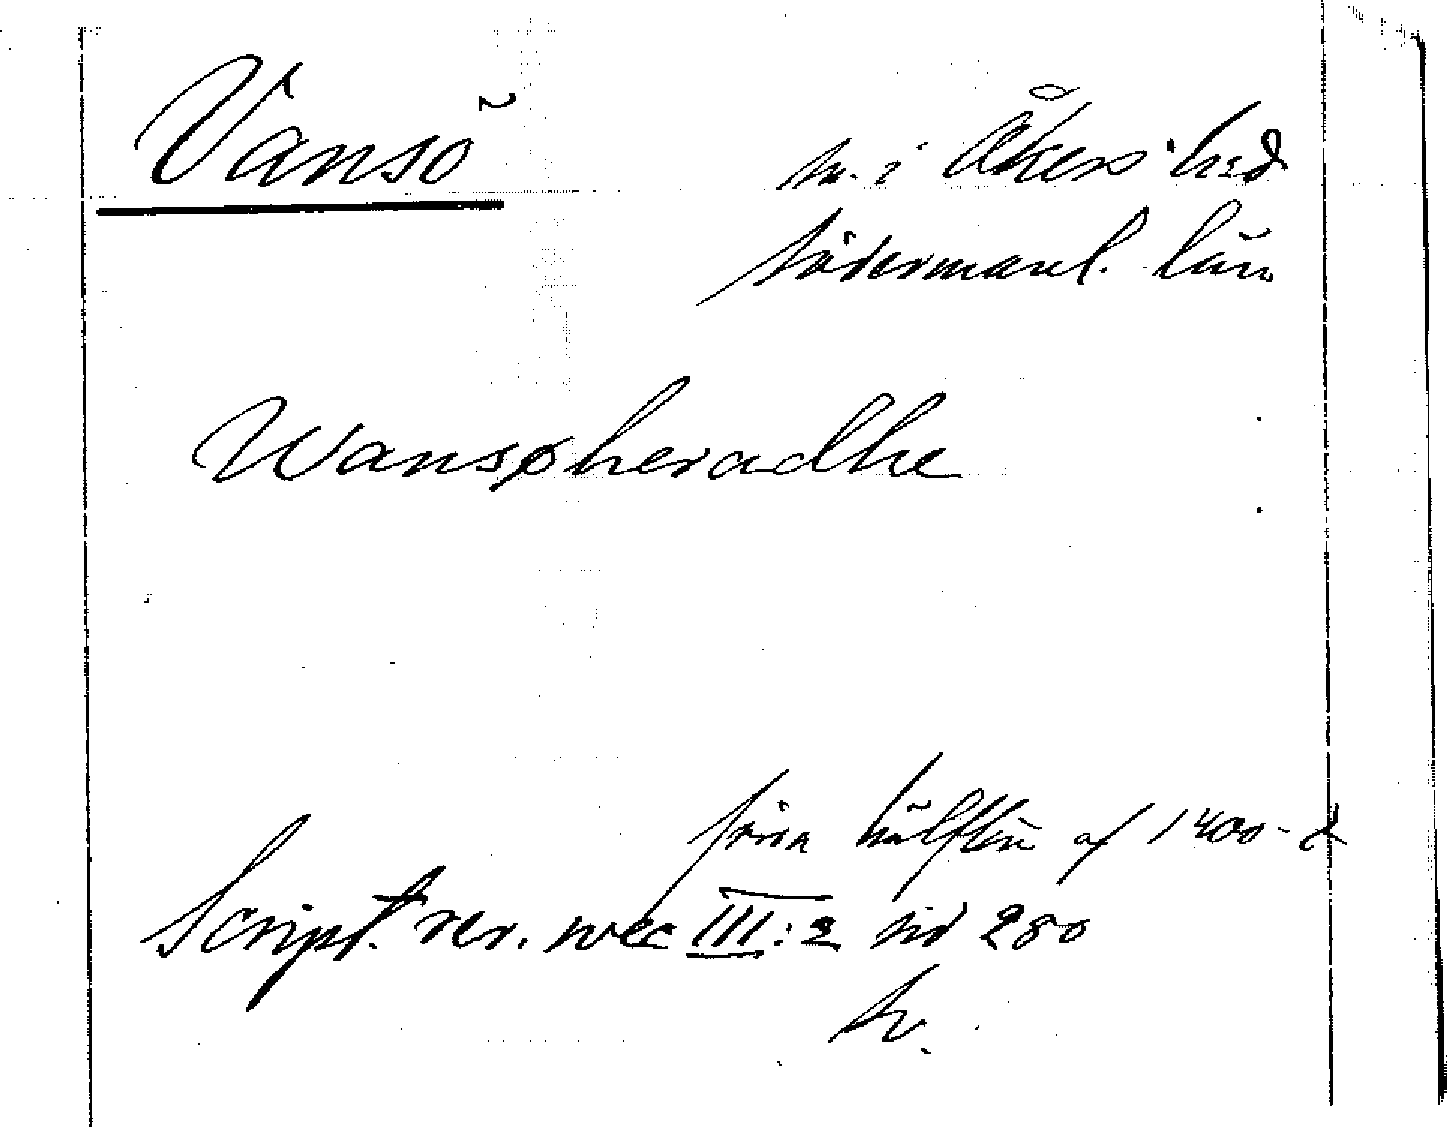 Vansö
sn. i Åkers hrd
Södermanl. län
Wansøheradhe
förra hälften af 1400-t
Script. rer. svec III:2 sid 280